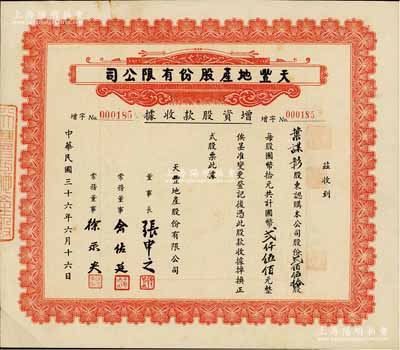 上海陽明拍賣
司公限有份股產地豐天
增字 No. 000185
據收款股資增
增字 No. 000185
茲收到
葉謀彰股東認購本公司股份貳佰伍拾股
每股國幣拾元共計國幣貳仟伍佰元整
俟基准變更登記後憑此股款收據掉換正
式股票此據
天豐地產股份有限公司
董事長 張申之
常務董事 俞佐廷
常務董事 徐示炎
中華民國三十六年六月十六日
上海陽明拍賣